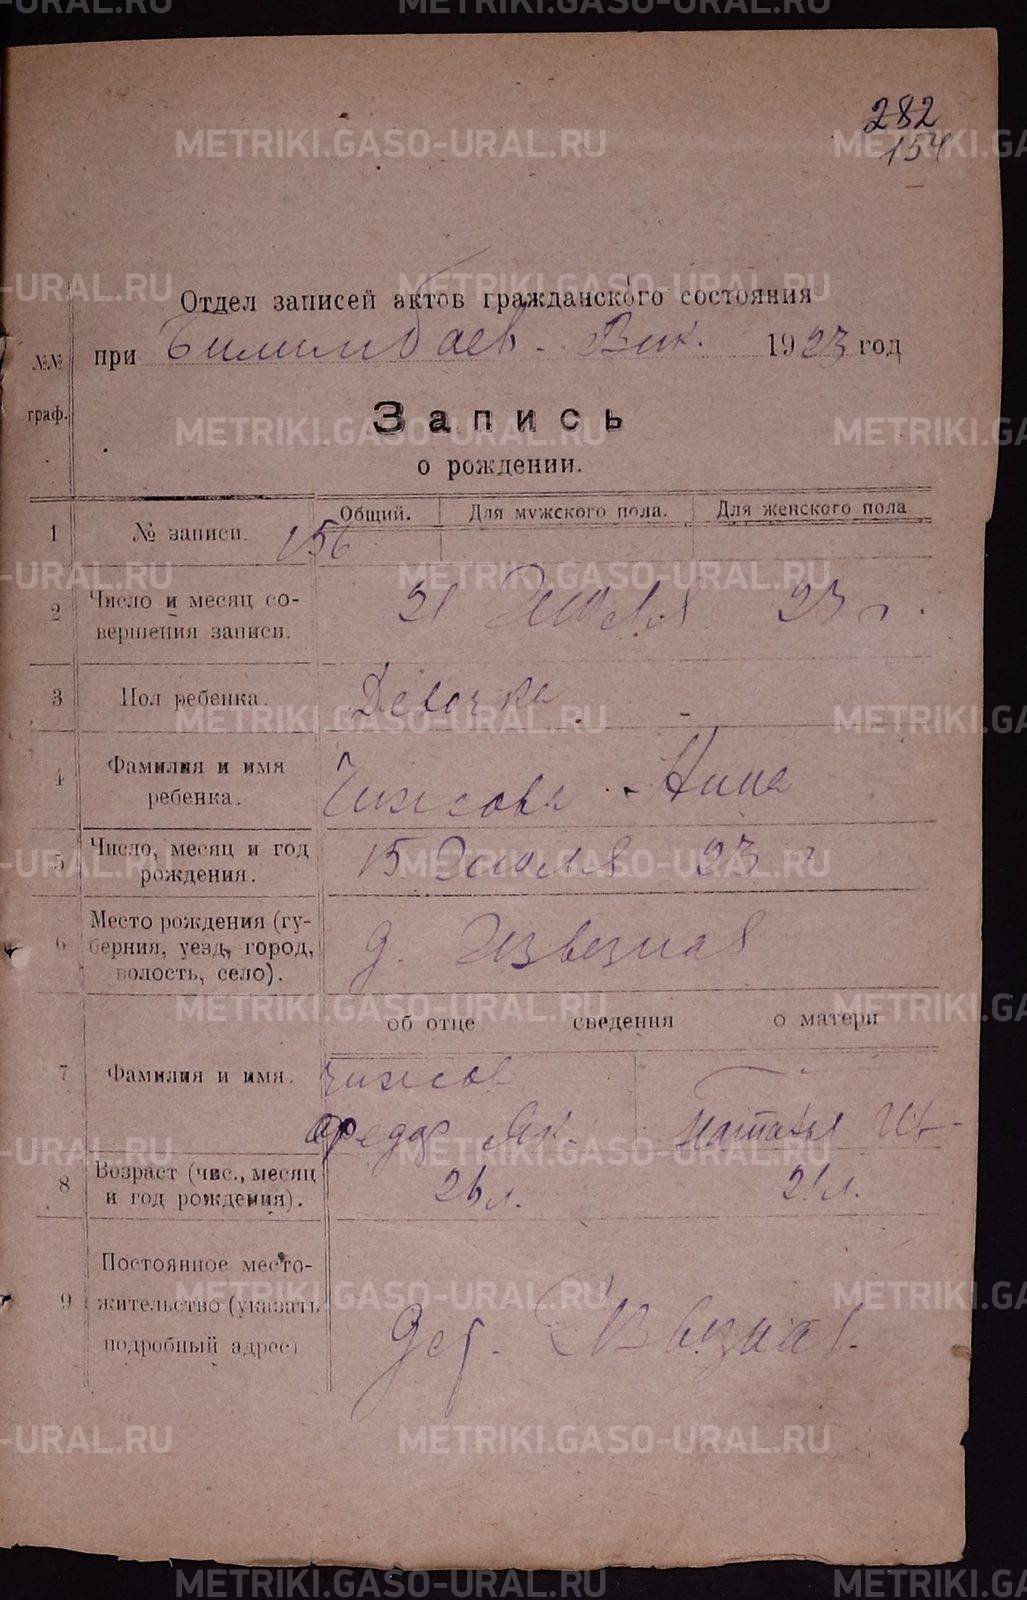 282
154
Отдел записей актов гражданского состояния
при Билимбаев. Вик. 1923 год
№№ граф.
Запись
о рождении.
Общий. Для мужского пола. Для женского пола
1 № записи. 156
2 Число и месяц со-
вершения записи. 21 Июля 23 г.
3 Пол ребенка. Девочка
4 Фамилия и имя
ребенка. Чижова Нина
5 Число, месяц и год
рождения. 15 Июля 23 г
6 Место рождения (гу-
берния, уезд, город,
волость, село). д. Извезная
об отце сведения о матери
7 Фамилия и имя. Чижов
Федор Як. Наталья
8 Возраст (чис., месяц
и год рождения). 26 л. 21 л.
9 Постоянное место-
жительство (указать
подробный адрес) дер. Извезная.
METRIKI.GASO-URAL.RU